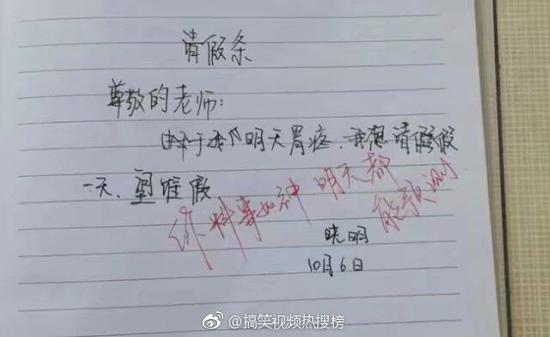 请假条
尊敬的老师:
由于我明天胃疼,我想请假
一天,望准假
你料事如神,明天都
能预测
晓明
10月6日
@搞笑视频热搜榜